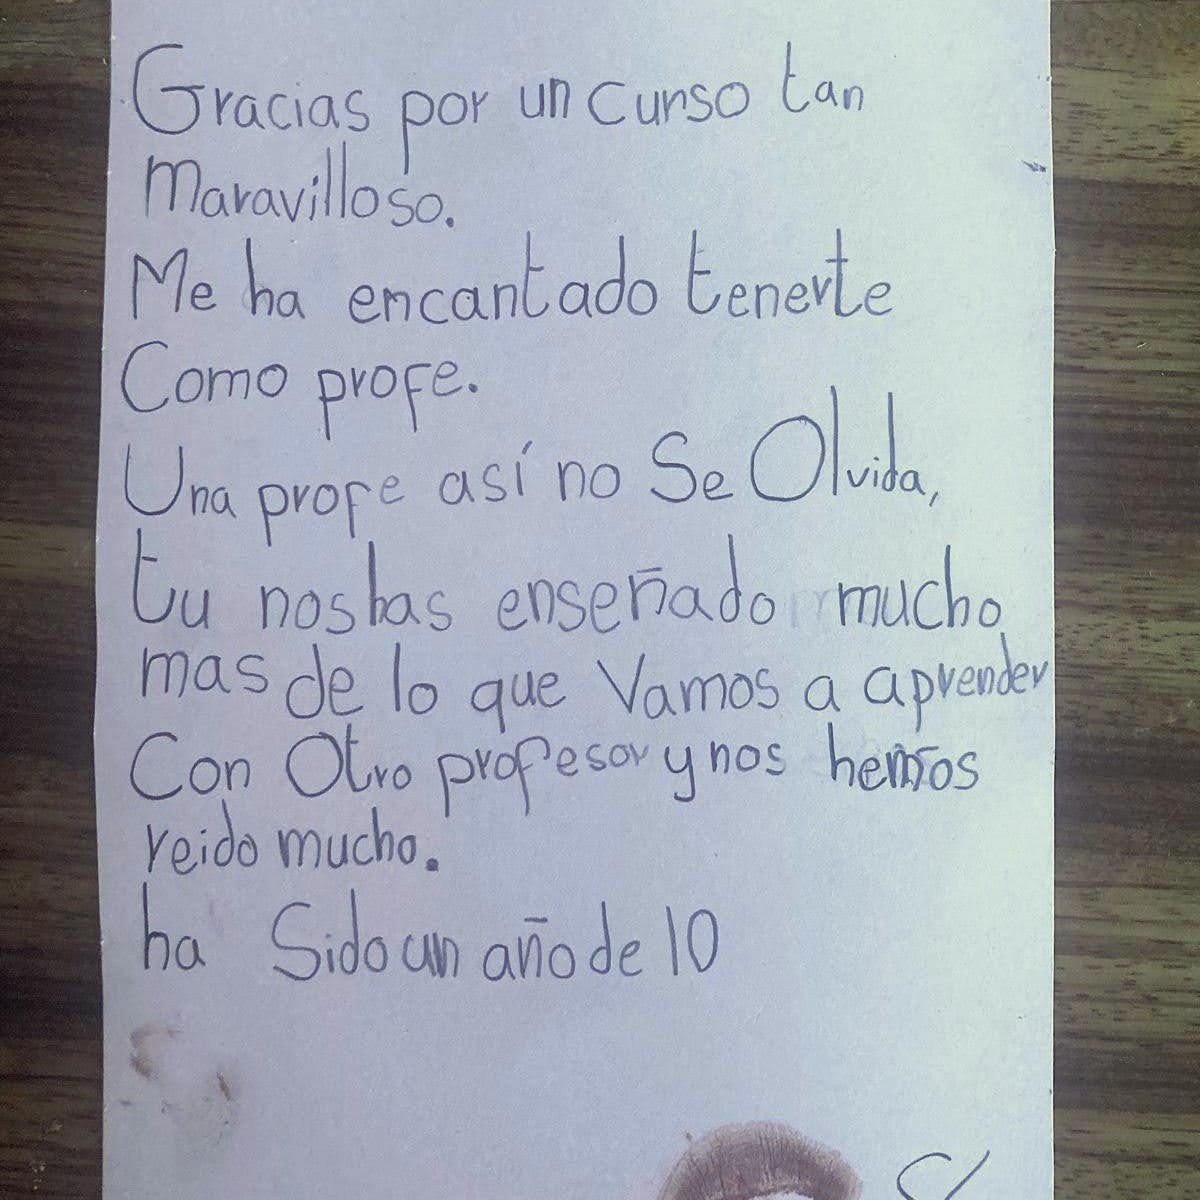 Gracias por un curso tan
maravilloso.
Me ha encantado tenerte
Como profe.
Una profe así no Se Olvida,
tu nos has enseñado mucho
mas de lo que Vamos a aprender
Con Otro profesor y nos hemos
reido mucho.
ha Sido un año de 10